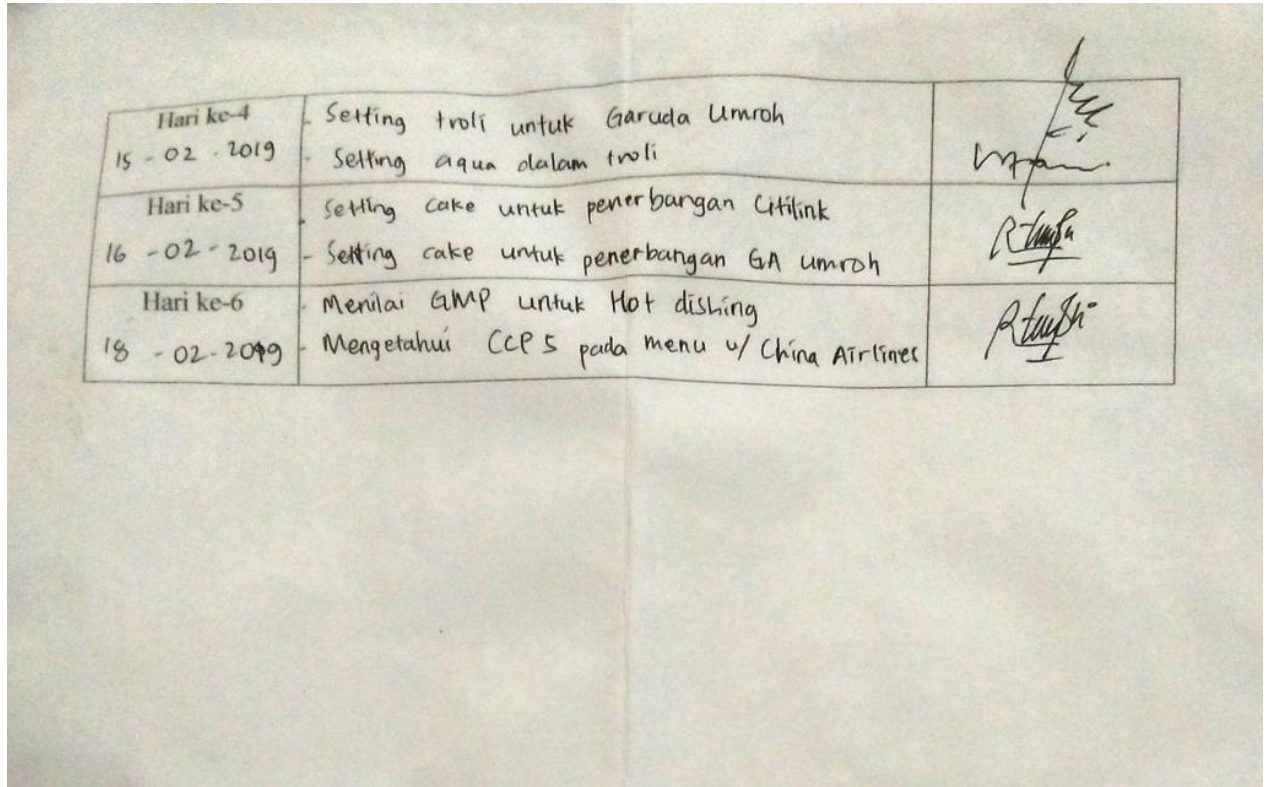 Hari ke-4
15 - 02 - 2019
- Setting troli untuk Garuda Umroh
- Setting aqua dalam troli
Hari ke-5
16 - 02 - 2019
- Setting cake untuk penerbangan Citilink
- Setting cake untuk penerbangan GA umroh
Hari ke-6
18 - 02 - 2019
- Menilai GMP untuk Hot dishing
- Mengetahui CCP 5 pada menu u/ China Airlines